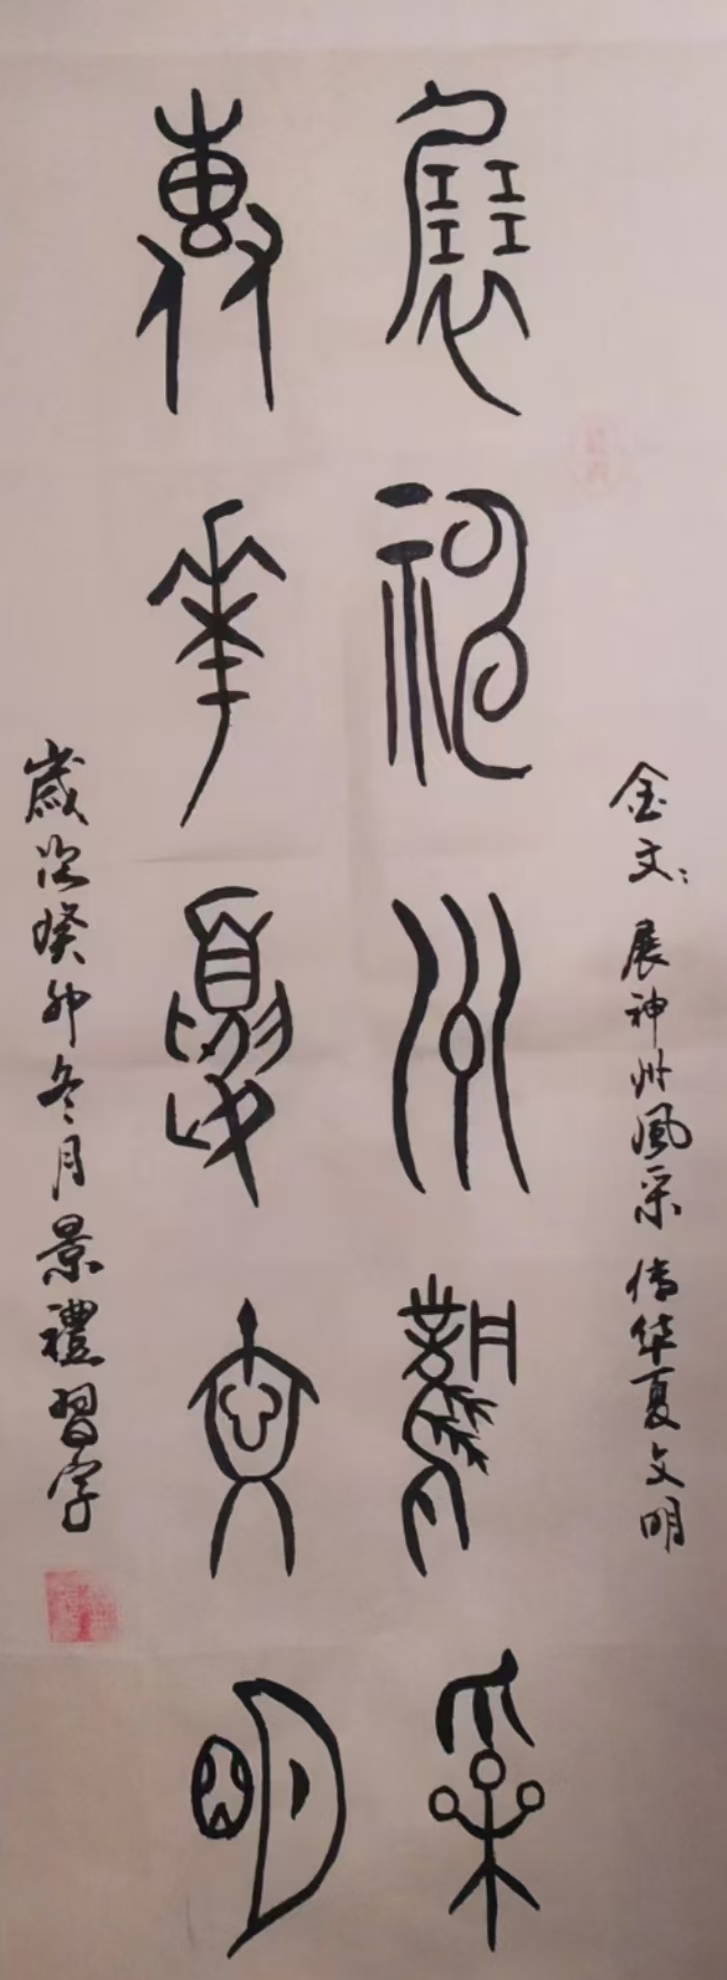 金文：展神州風采傳华夏文明
展神州風采
傳華夏文明
歲次癸卯冬月景禮習字